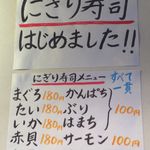 にぎり寿司
はじめました!!
にぎり寿司メニュー
すべて一貫
まぐろ180円
たい180円
いか180円
赤貝180円
かんぱち
ぶり
はまち
サーモン
100円
100円